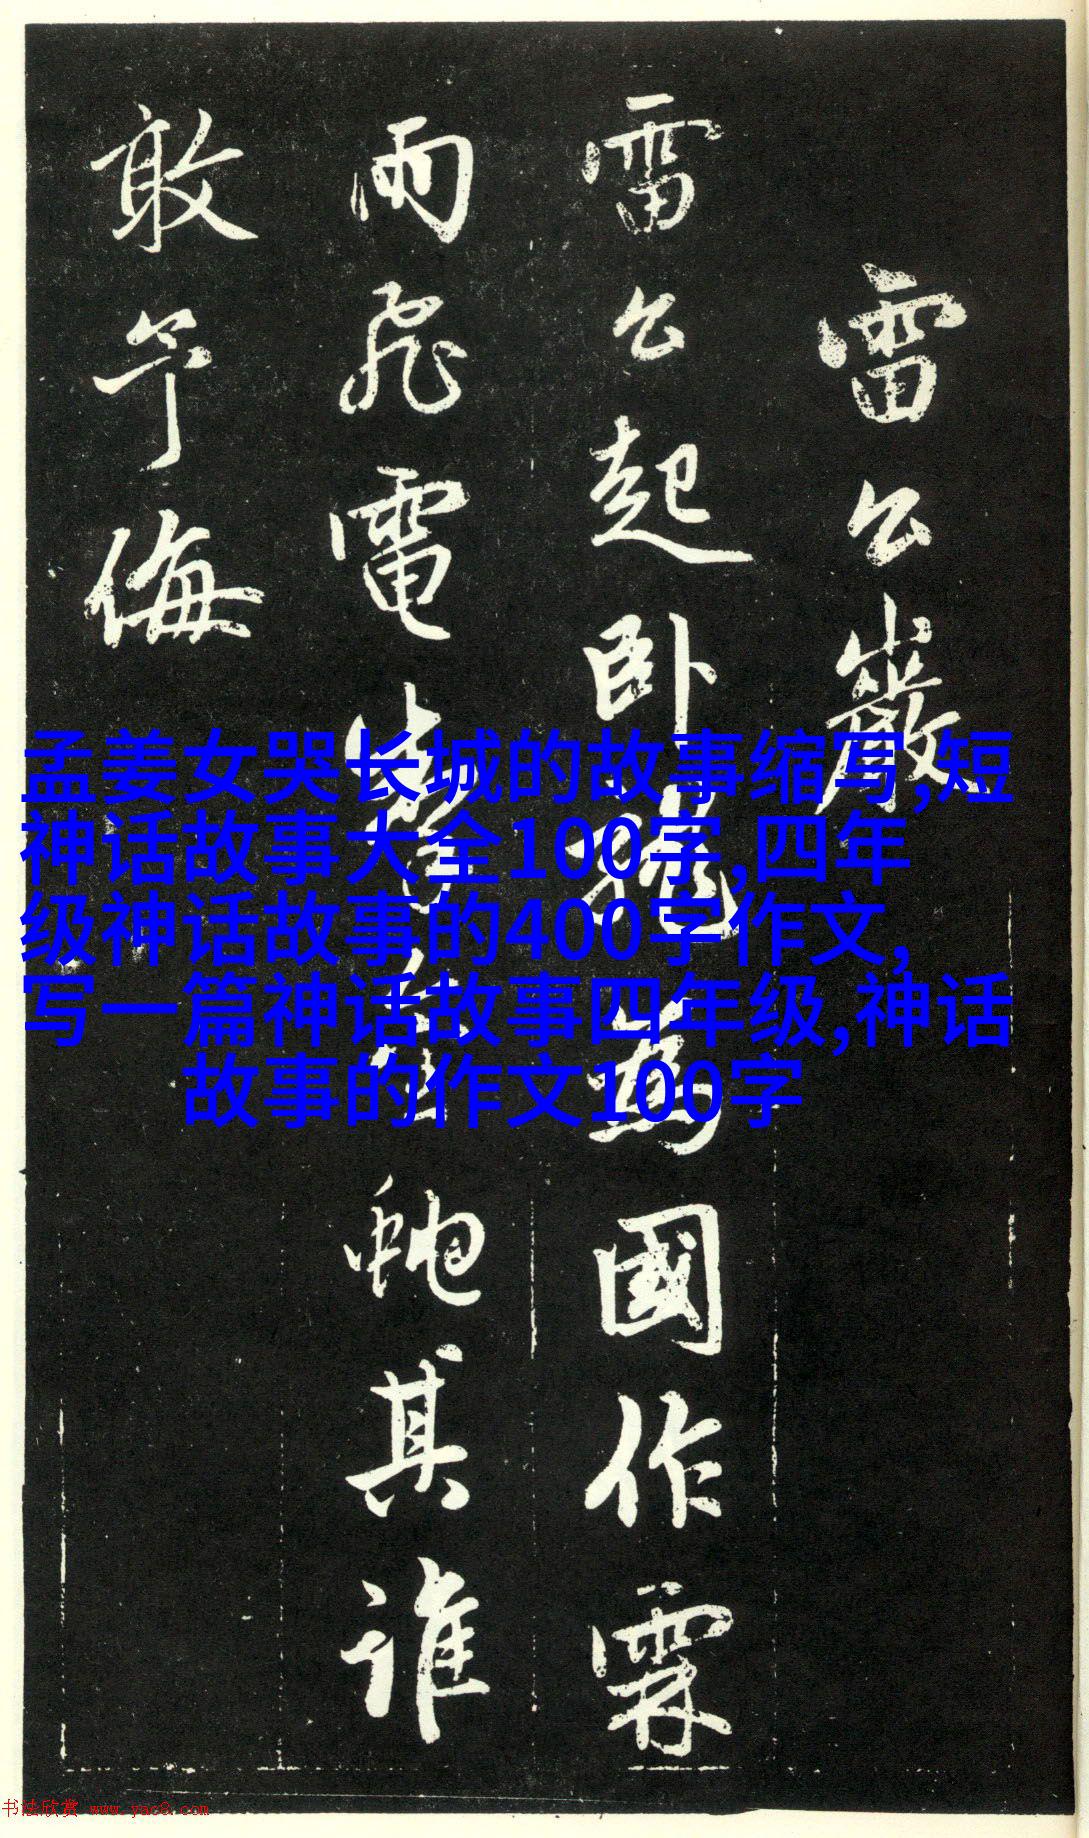 雷公巖
雷公起卧為國作霖
雨飛電蛇其誰
敢予侮
孟姜女哭长城的故事缩写,短
神话故事大全100字,四年
级神话故事的400字作文,
写一篇神话故事四年级,神话
故事的作文100字
书法欣赏 www.yac8.com